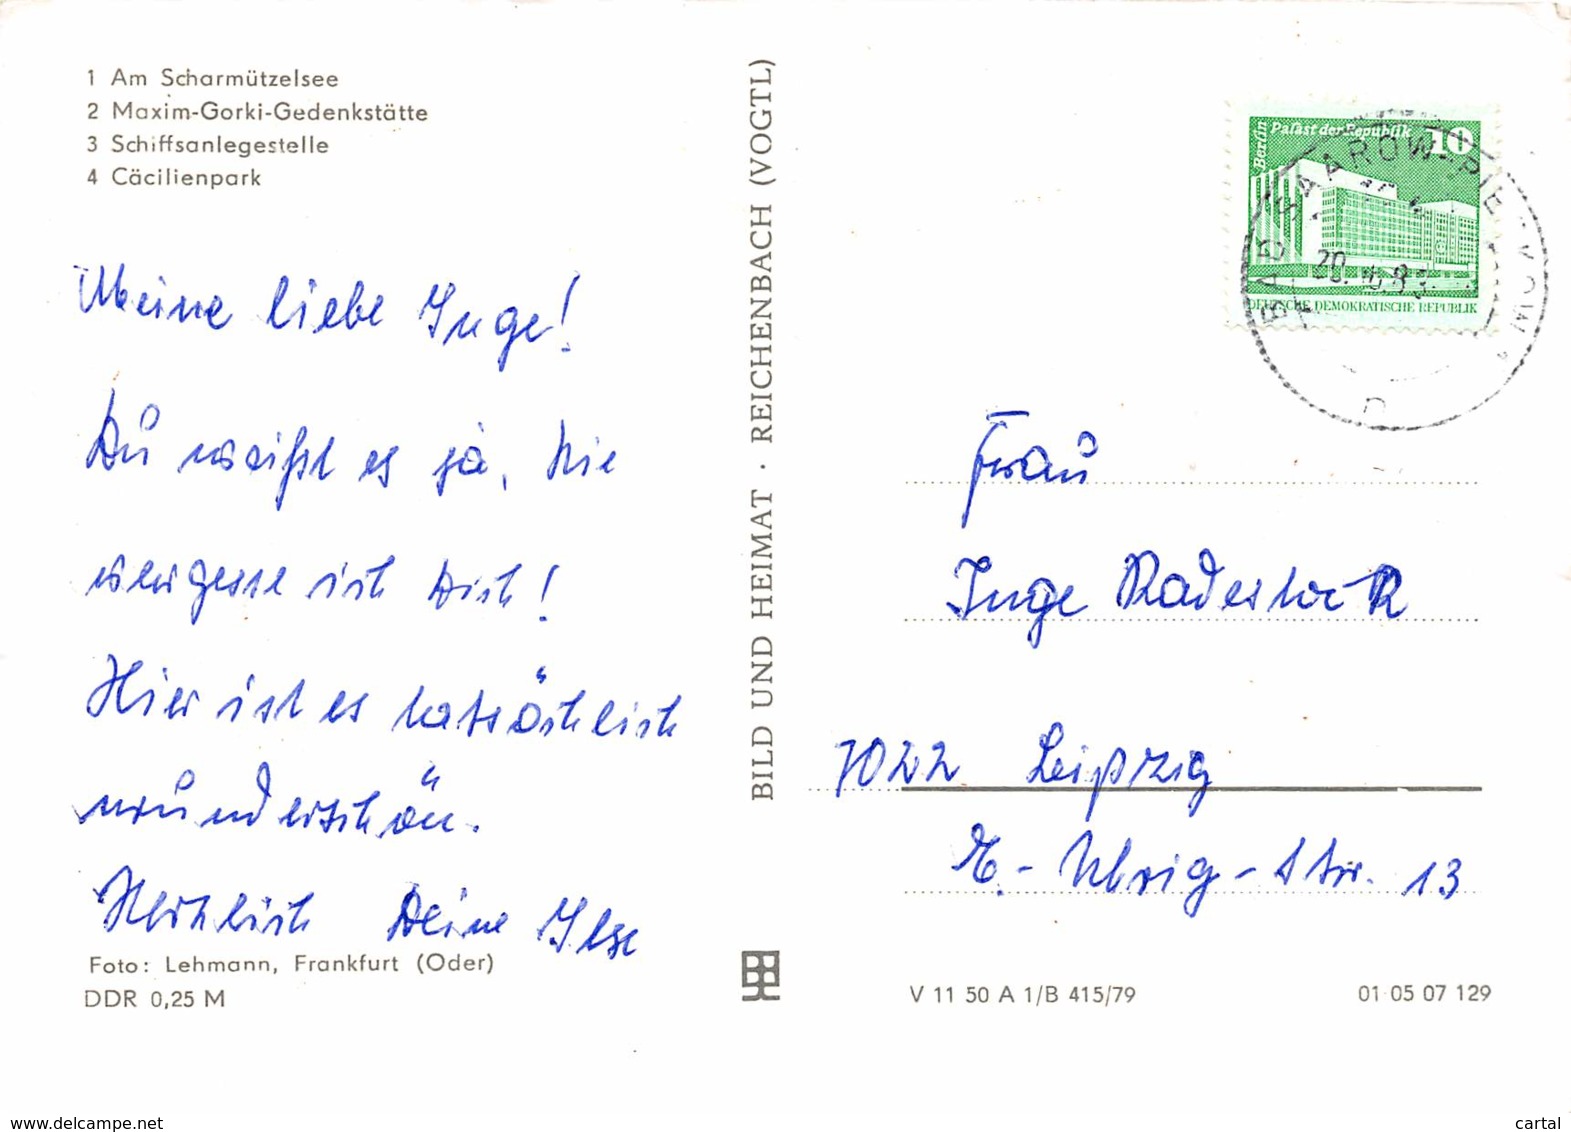 1 Am Scharmützelsee
2 Maxim-Gorki-Gedenkstätte
3 Schiffsanlegestelle
4 Cäcilienpark
Meine liebe Inge!
Du weißt es ja, nie
vergesse ich Dich!
Hier ist es tatsächlich
wunderschön.
Herzlich Deine Ilse
Foto: Lehmann, Frankfurt (Oder)
DDR 0,25 M
BILD UND HEIMAT · REICHENBACH (VOGTL)
Berlin
Palast der Republik 10
DEUTSCHE DEMOKRATISCHE REPUBLIK
BAD SAAROW-PIE
Frau
Inge Radestock
7022 Leipzig
Uhrig-Str. 13
V 11 50 A 1/B 415/79
01 05 07 129
www.delcampe.net
cartal